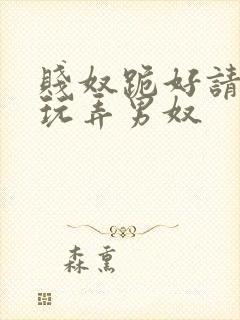 賤奴跪好請
玩弄男奴
森熏